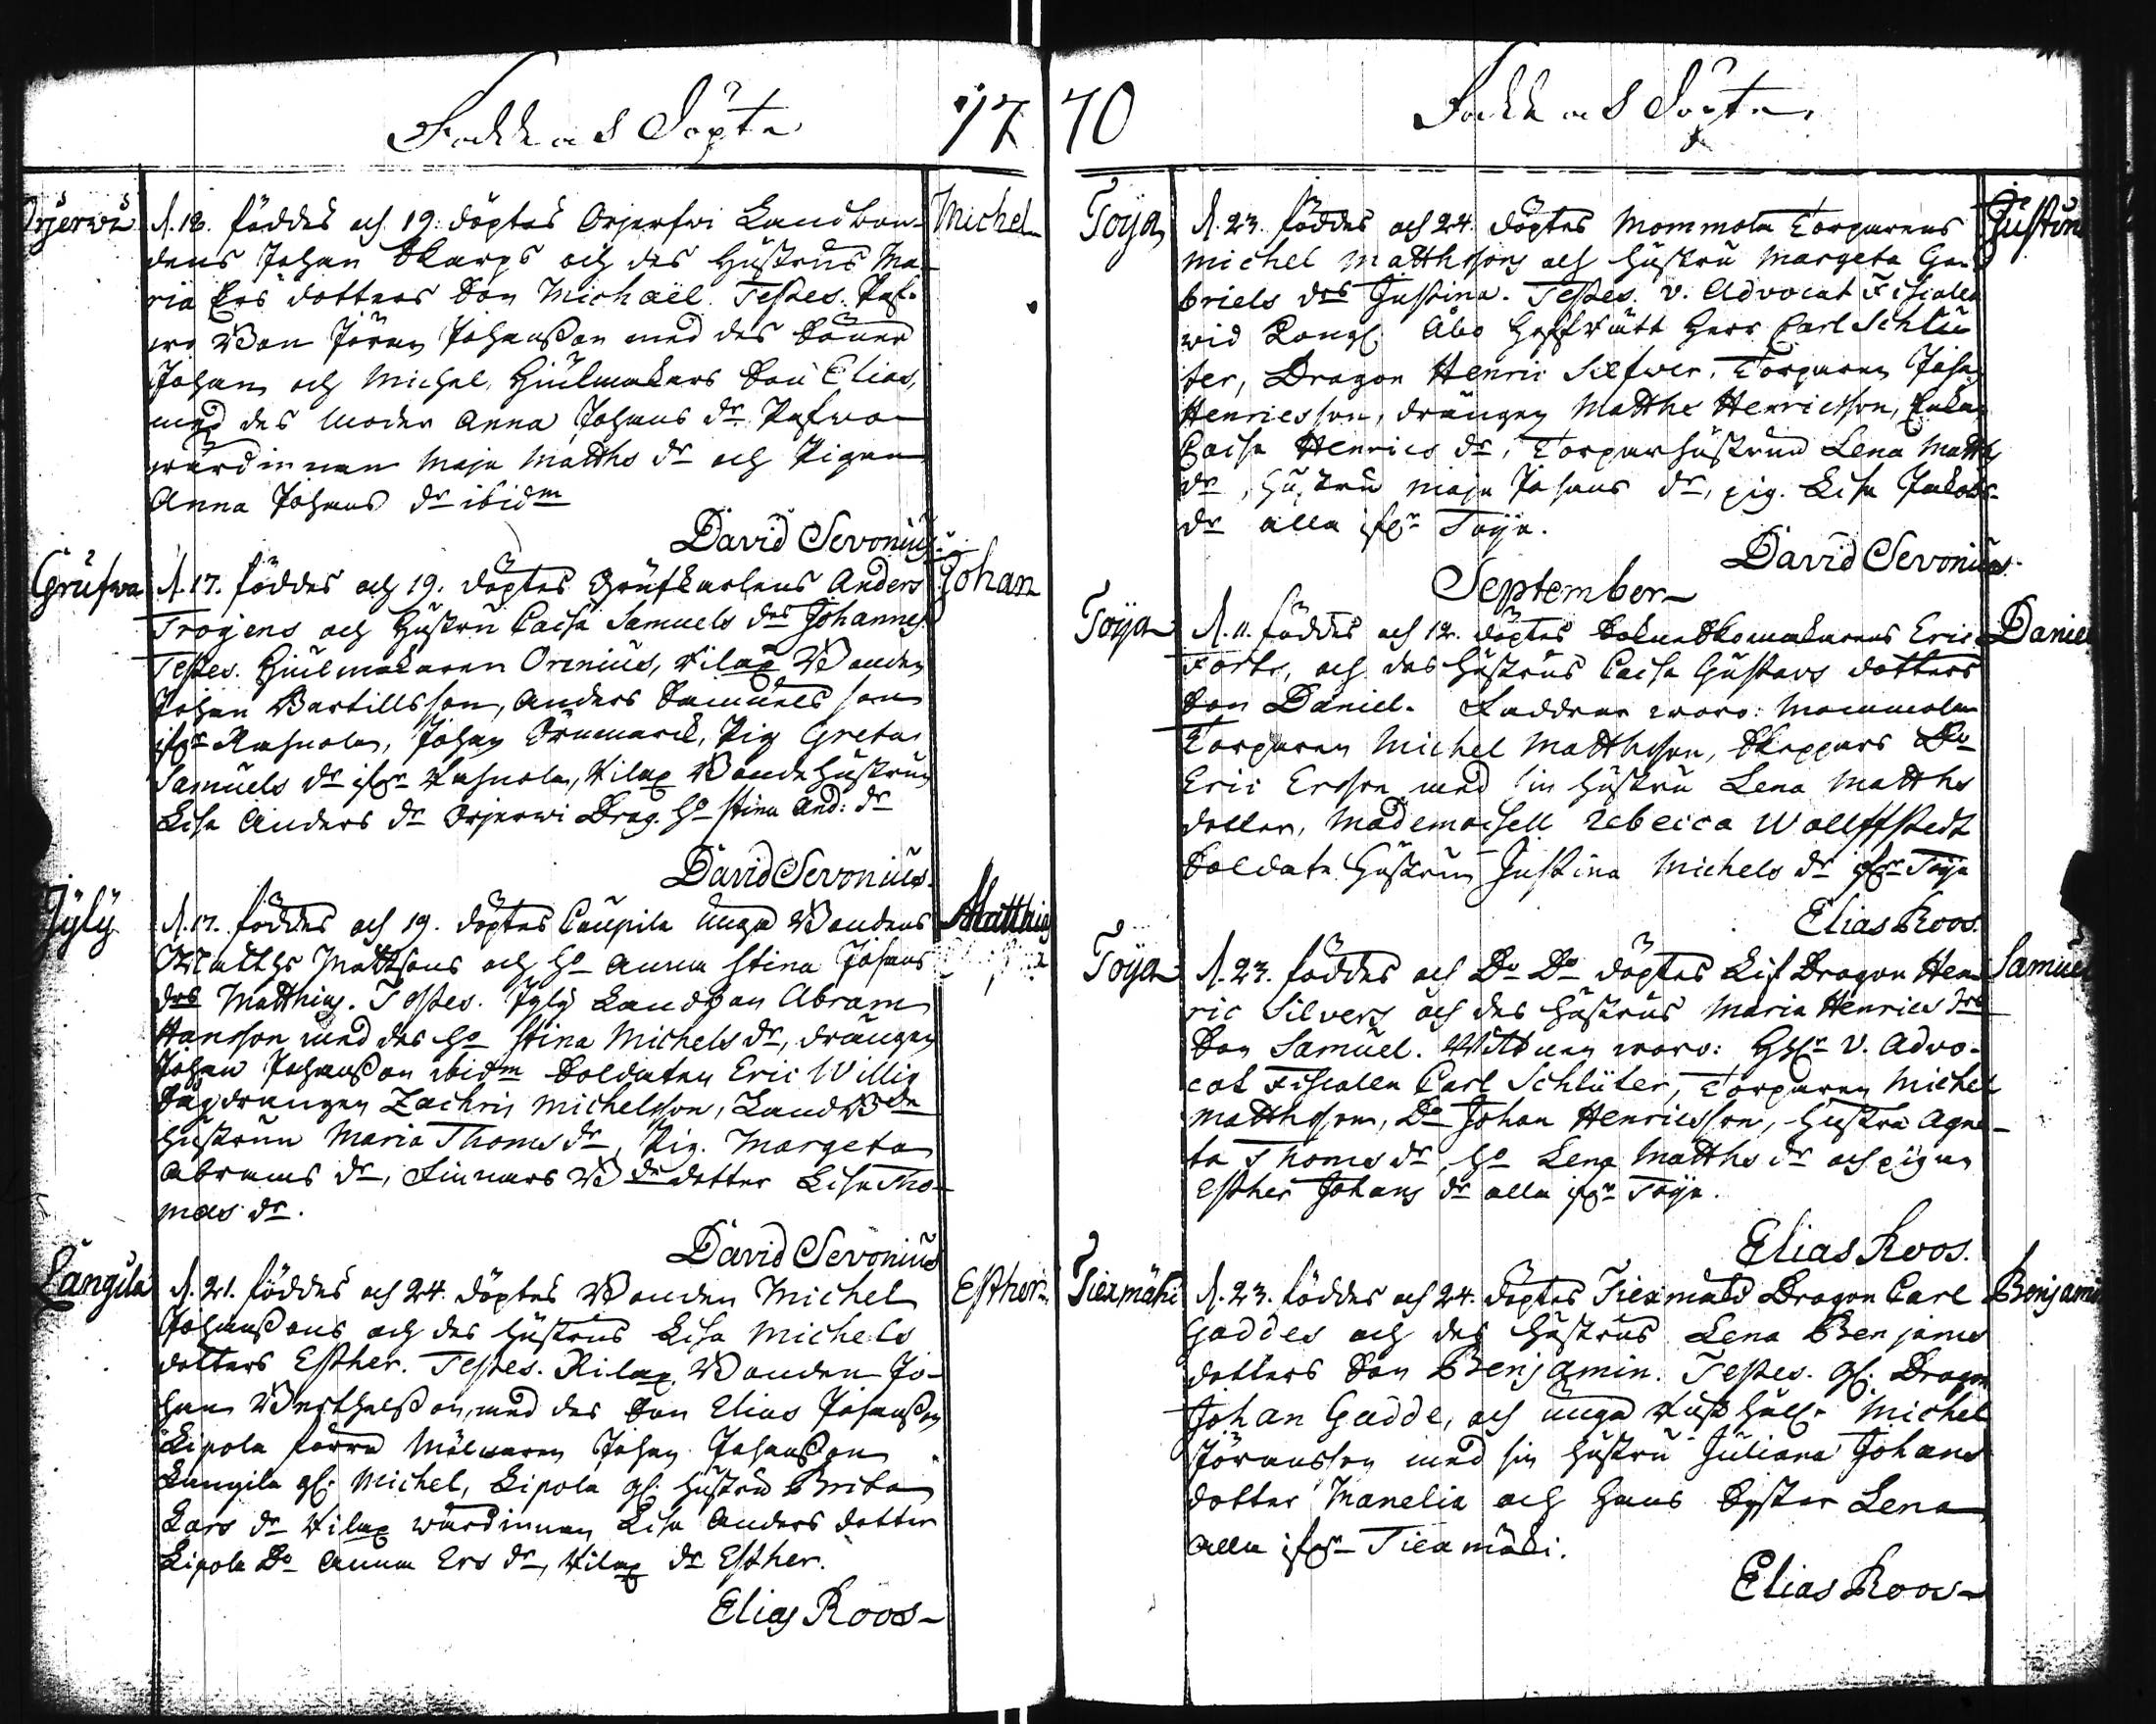 Födde och Döpte 1770 Födde och Döpte
Orjerwi
d. 18. föddes och 19. döptes Orjerfwi Landbon-
dens Johan Skarps och des Hustrus Ma-
ria Ers dotters Son Michaël. Testes.
Bon Jöran Johansson med des Söner
Johan och Michel, Hiulmakars Son Elias,
med des Moder Anna Johans dr
wärdinnan Maja Matths dr och Pigan
Anna Johans dr ibidm
David Sevonius
Michel
Grufwa
d. 17. föddes och 19. döptes Grufkarlens Anders
Trogens och Hustru Caisa Samuels drs Johannes
Testes. Hiulmakaren Orenius, Kilax Bonden
Johan Bertillsson, Anders Samuels son
ifrn Kasnola, Johan, Pig Greta
Samuels dr ifrn Kasnola, Kilax Bonde Hustrun
Lisa Anders dr Orjerwi Drag. Ho Stina And: dr
David Sevonius.
Johan
Jyly
d. 17. föddes och 19. döptes Caupila unga Bondens
Matths Mattsons och Ho Anna Stina Johans
drs Matthias. Testes. Jyly Landbon Abram
Hansson med des Ho Stina Michels dr, drängen
Johan Johansson ibidm Soldaten Eric Willig
drängen Zachris Michelsson, Landbde
Hustrun Maria Thoms dr, Pig. Margeta
Abrams dr, Finnars Bde dotter Lisa Tho-
mas dr.
David Sevonius
Matthias
Långila
d. 21. föddes och 24. döptes Bonden Michel
Johanssons och des Hustrus Lisa Michels
dotters Esther. Testes. Kilax Bonden Jo-
han Berthelsson, med des Son Elias Johansson
Lipola förra Mölnaren Johan Johansson
Langila gl. Michel, Lipola gl. Hustru Brita
Lars dr Kilax wärdinnan Lisa Anders dotter
Lipola Do Anna Ers dr, Kilax dr Esther.
Elias Roos
Esther
Toya
d. 23. föddes och 24. döptes Mommola Torparens
Michel Matthssons och Hustru Margeta Ga-
briels drs Justina. Testes. v. Advocat Fiscalen
wid Kongl. Åbo Hofrätt Herr Carl Schlü
ter, Dragon Henric Silfwer, Torparen Johan
Henricsson, drängen Matths Henricsson, Enkan
Caisa Henrics dr, Torparhustrun Lena Matths
dr, Hustru Maja Johans dr, pig. Lisa Jakobs
dr alla ifrn Toya.
David Sevonius
Justina
September
Toya
d. 11. föddes och 12. döptes Sokne Skomakarens Eric
Forts, och des Hustrus Caisa Gustavs dotters
Son Daniel. Faddrar woro: Mommola
Torparen Michel Matthsson, Skeppars Do
Eric Ersson med sin Hustru Lena Matths
dotter, Mademoisell Rebecca Wollffstedt
Soldate Hustrun Justina Michels dr ifrn Toya
Elias Roos.
Daniel
Toya
d. 23. föddes och Do Do döptes Lif Dragon Hen-
ric Silvers och des Hustrus Maria Henrics drs
Son Samuel. Wittnen woro: Hrr v. Advo-
cat Fiscalen Carl Schlüter, Torparen Michel
Matthsson, Do Johan Henricsson, Hustru Agne-
ta Thoms dr, Ho Lena Matths dr och pigan
Esther Johans dr alla ifrn Toya.
Elias Roos.
Samuel
Tiexmäki
d. 23. föddes och 24. döptes Tiexmäki Dragon Carl
Gaddes och des Hustrus Lena Benjams
dotters Son Benjamin. Testes. gl. Dragon
Johan Gadde, och unga Rusth. Michel
Jöransson med sin Hustru Juliana Johans
dotter Manelia och Hans Syster Lena
alla ifrn Tiexmäki.
Elias Roos
Benjamin